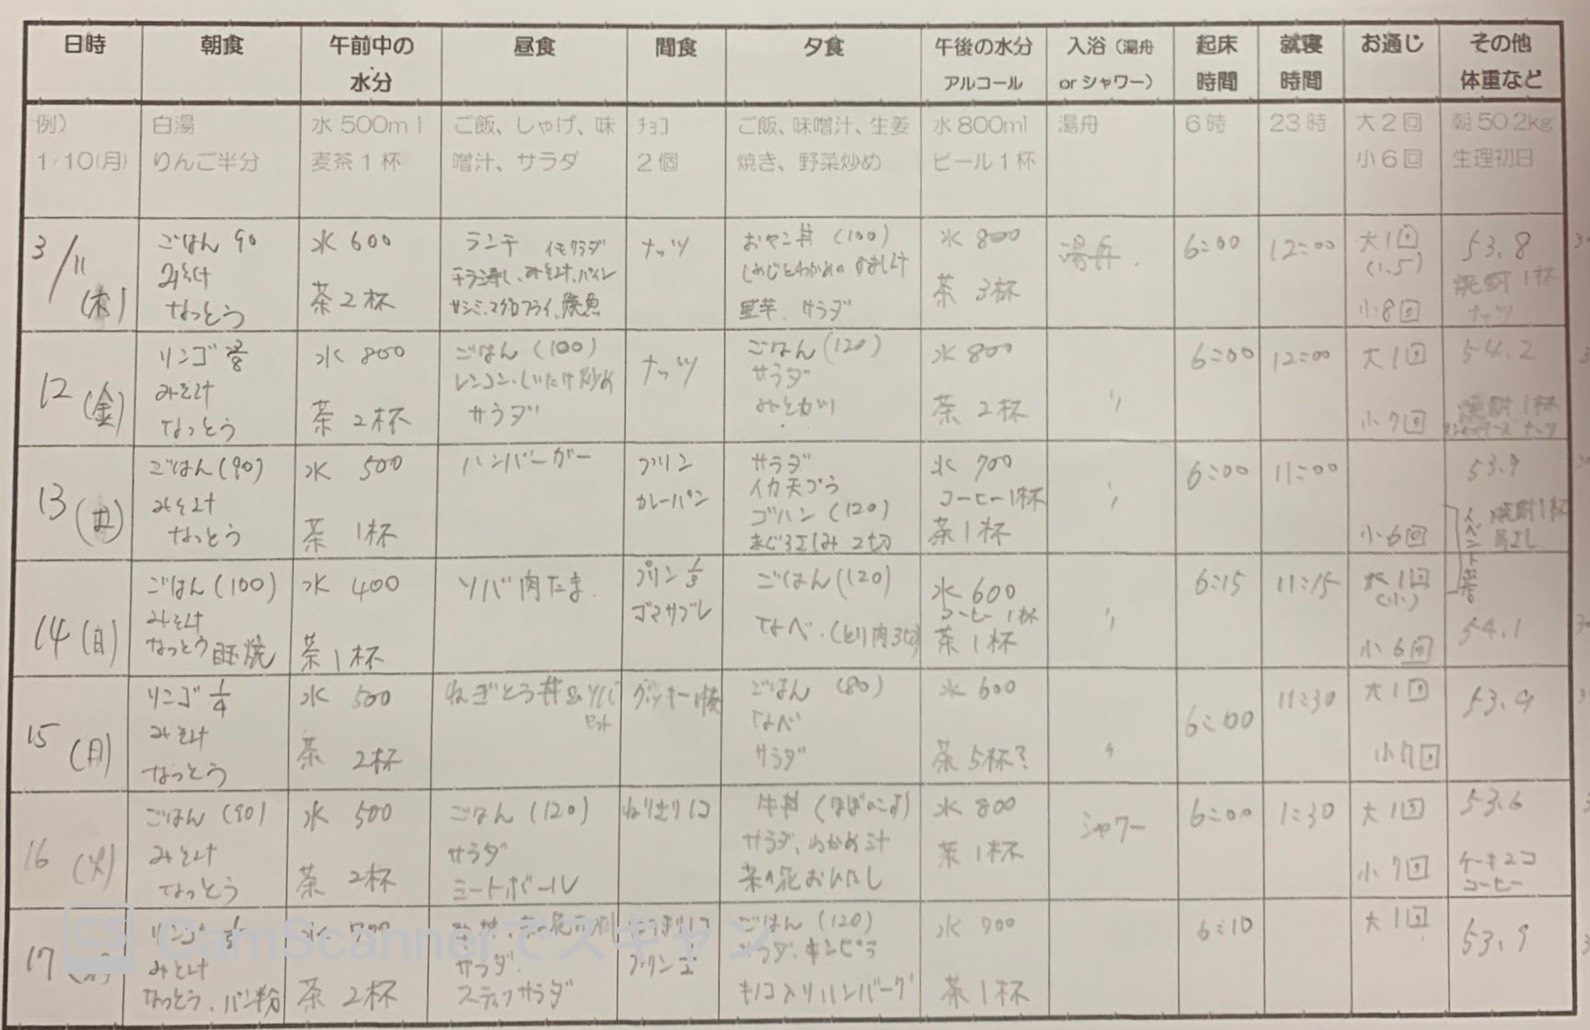 日時 朝食 午前中の水分 昼食 間食 夕食 午後の水分 アルコール 入浴（湯舟 or シャワー） 起床時間 就寝時間 お通じ その他 体重など
例） 白湯 水500ml ご飯、しゃげ、味 チョコ ご飯、味噌汁、生姜 水800ml 湯舟 6時 23時 大2回 朝50.2kg
1/10(月) りんご半分 麦茶1杯 噌汁、サラダ 2個 焼き、野菜炒め ビール1杯 小6回 生理初日
3/11(木) ごはん 90 水 600 ランチ ナッツ おやこ丼 (100) 水 800 湯舟 6:00 12:00 大1回 53.8
みそ汁 (1.5) 焼酎1杯
なっとう 茶2杯 サシミ、マグロフライ、焼魚 里芋、サラダ 茶 3杯 小8回 ナッツ
12(金) リンゴ 水 800 ごはん (100) ナッツ ごはん (120) 水 800 〃 6:00 12:00 大1回 54.2
みそ汁 レンコン、しいたけ炒め サラダ
なっとう 茶 2杯 サラダ 茶 2杯 小7回 焼酎1杯 ナッツ
13(土) ごはん (90) 水 500 ハンバーガー プリン サラダ 水 700 〃 6:00 11:00 53.9
みそ汁 カレーパン イカ天ぷら コーヒー1杯 焼酎1杯
なっとう 茶 1杯 ゴハン (120) 茶1杯 小6回
まぐろさしみ 2切
14(日) ごはん (100) 水 400 ソバ肉たま プリン1/3 ごはん (120) 水 600 〃 6:15 11:15 大1回 (小)
みそ汁 ゴマサブレ コーヒー 1杯
なっとう 目玉焼 茶1杯 なべ (とり肉3切) 茶 1杯 小6回 54.1
15(月) リンゴ 1/4 水 500 ねぎとろ丼&ソバ セット クッキー1枚 ごはん (80) 水 600 〃 6:00 11:30 大1回 53.9
みそ汁 なべ
なっとう 茶 2杯 サラダ 茶 5杯? 小7回
16(火) ごはん (90) 水 500 ごはん (120) 牛丼 水 800 シャワー 6:00 1:30 大1回 53.6
みそ汁 サラダ サラダ、わかめ汁 茶 1杯
なっとう 茶 2杯 ミートボール 菜の花おひたし 小7回 ケーキ2コ コーヒー
17 リンゴ 水 700 ごはん (120) 水 900 6:10 大1回 53.9
みそ汁 サラダ プリン サラダ、キンピラ
なっとう、パン半分 茶 2杯 スティックサラダ キノコ入りハンバーグ 茶1杯
CS CamScannerでスキャン